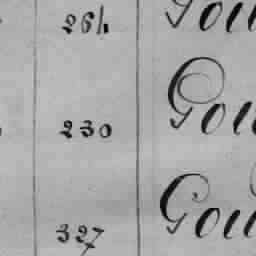 264 Gou
230 Gou
327 Gou